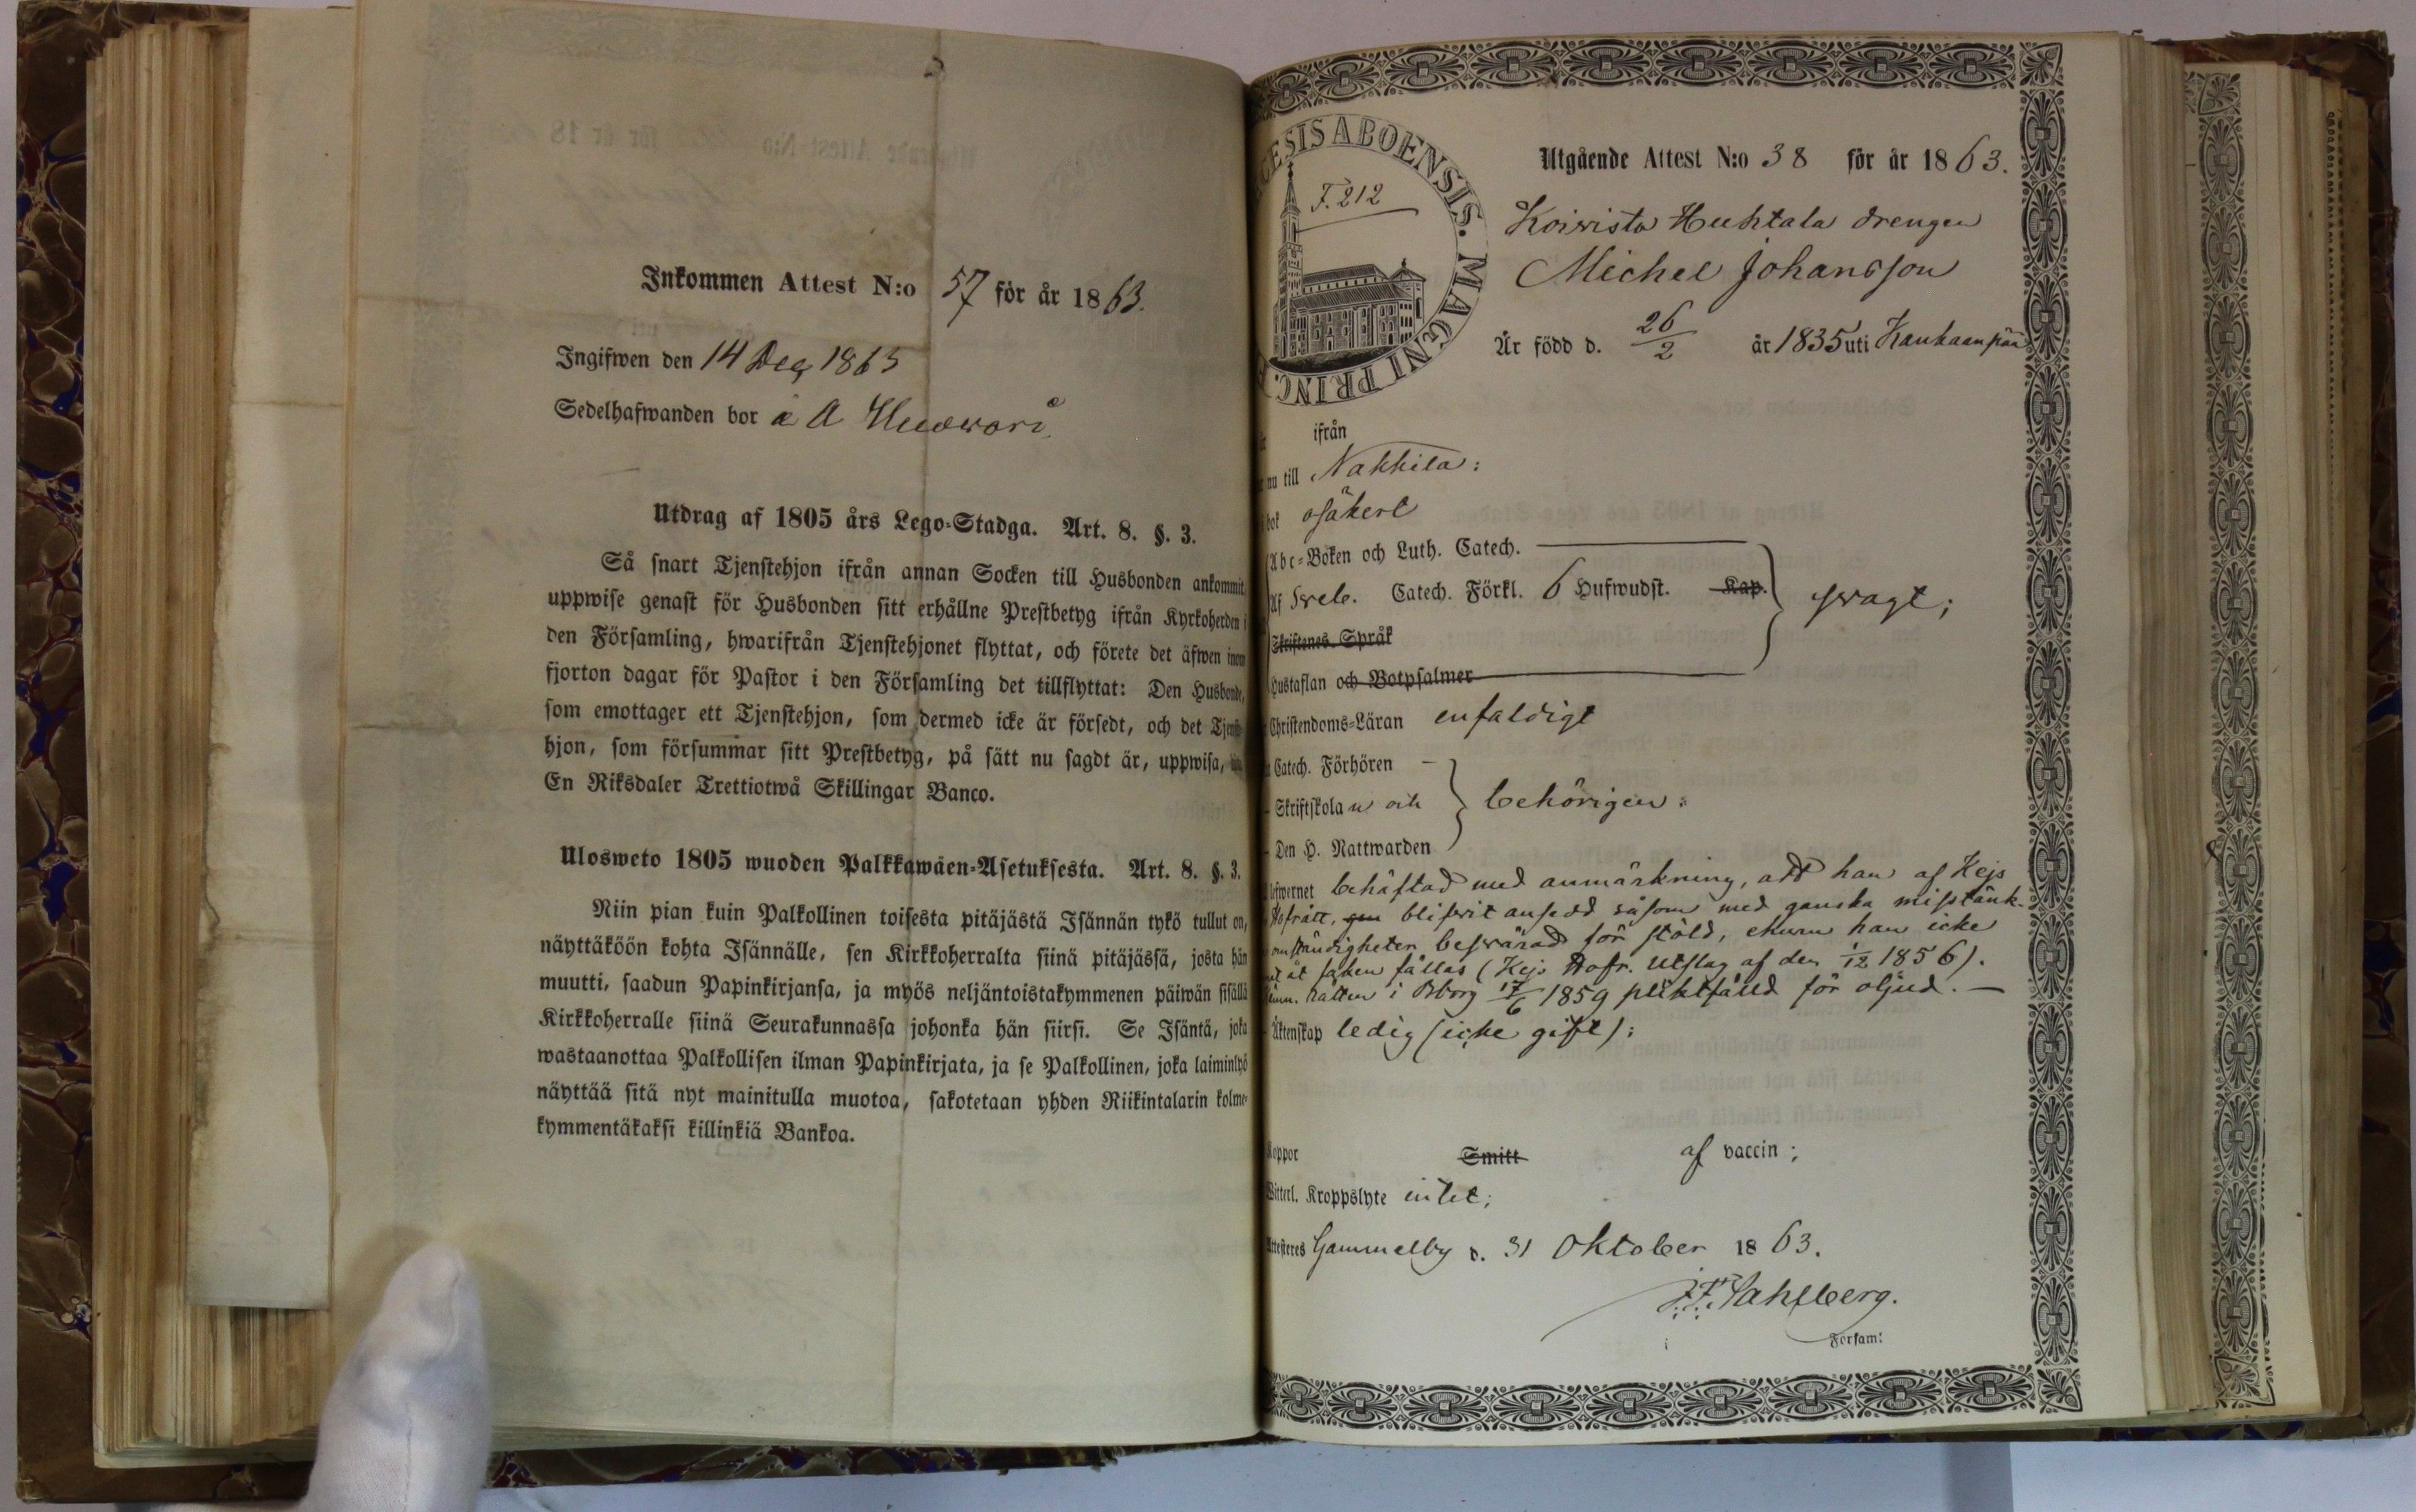 Inkommen Attest N:o 57 för år 1863.
Ingifwen den 14 Dec 1863
Sedelhafwanden bor å A
Utdrag af 1805 års Lego-Stadga. Art. 8. §. 3.
Så snart Tjenstehjon ifrån annan Socken till Husbonden ankommit
uppwise genast för Husbonden sitt erhållne Prestbetyg ifrån Kyrkoherden i
den Församling, hwarifrån Tjenstehjonet flyttat, och förete det äfwen inom
fjorton dagar för Pastor i den Församling det tillflyttat: Den Husbonde,
som emottager ett Tjenstehjon, som dermed icke är försedt, och det Tjenste-
hjon, som försummar sitt Prestbetyg, på sätt nu sagdt är, uppwisa,
En Riksdaler Trettiotwå Skillingar Banco.
Ulosweto 1805 wuoden Palkkawäen-Asetuksesta. Art. 8. §. 3.
Niin pian kuin Palkollinen toisesta pitäjästä Isännän tykö tullut on,
näyttäköön kohta Isännälle, sen Kirkkoherralta siinä pitäjässä, josta hän
muutti, saadun Papinkirjansa, ja myös neljäntoistakymmenen päiwän sisällä
Kirkkoherralle siinä Seurakunnassa johonka hän siirsi. Se Isäntä, joka
wastaanottaa Palkollisen ilman Papinkirjata, ja se Palkollinen, joka laiminlyö
näyttää sitä nyt mainitulla muotoa, sakotetaan yhden Riikintalarin kolme-
kymmentäkaksi killinkiä Bankoa.
CESIS ABOENSIS. MAGNI PRINC. F
F. 212
Utgående Attest N:o 38 för år 1863.
Koivisto Huhtala drengen
Michel Johansson
Är född d. 26/2 år 1835 uti Kankaanpää
ifrån
nu till Nakkila:
bok osäkert
Abc-Boken och Luth. Catech.
Af Sveb. Catech. Förkl. 6 Hufwudst. Kap. svagt;
Skriftenes Språk
Hustaflan och Botpsalmer
Christendoms-Läran enfaldigt
Catech. Förhören
Skriftskolan och behörigen:
Den H. Nattwarden
lefwernet behäftad med anmärkning, att han af Kejs
Hofrätt, blifvit ansedd såsom med ganska misstänk-
omständigheter besvärad för stöld, ehuru han icke
åt saken fällas (Kejs Hofr. Utslag af den 1/12 1856).
Rätten i Bborg 17/6 1859 pliktfälld för oljud. —
Äktenskap ledig (icke gift):
Koppor Smitt af vaccin;
Witterl. Kroppslyte intet;
Attesteres Gammelby d. 31 Oktober 1863.
F. Sahlberg.
i Församl